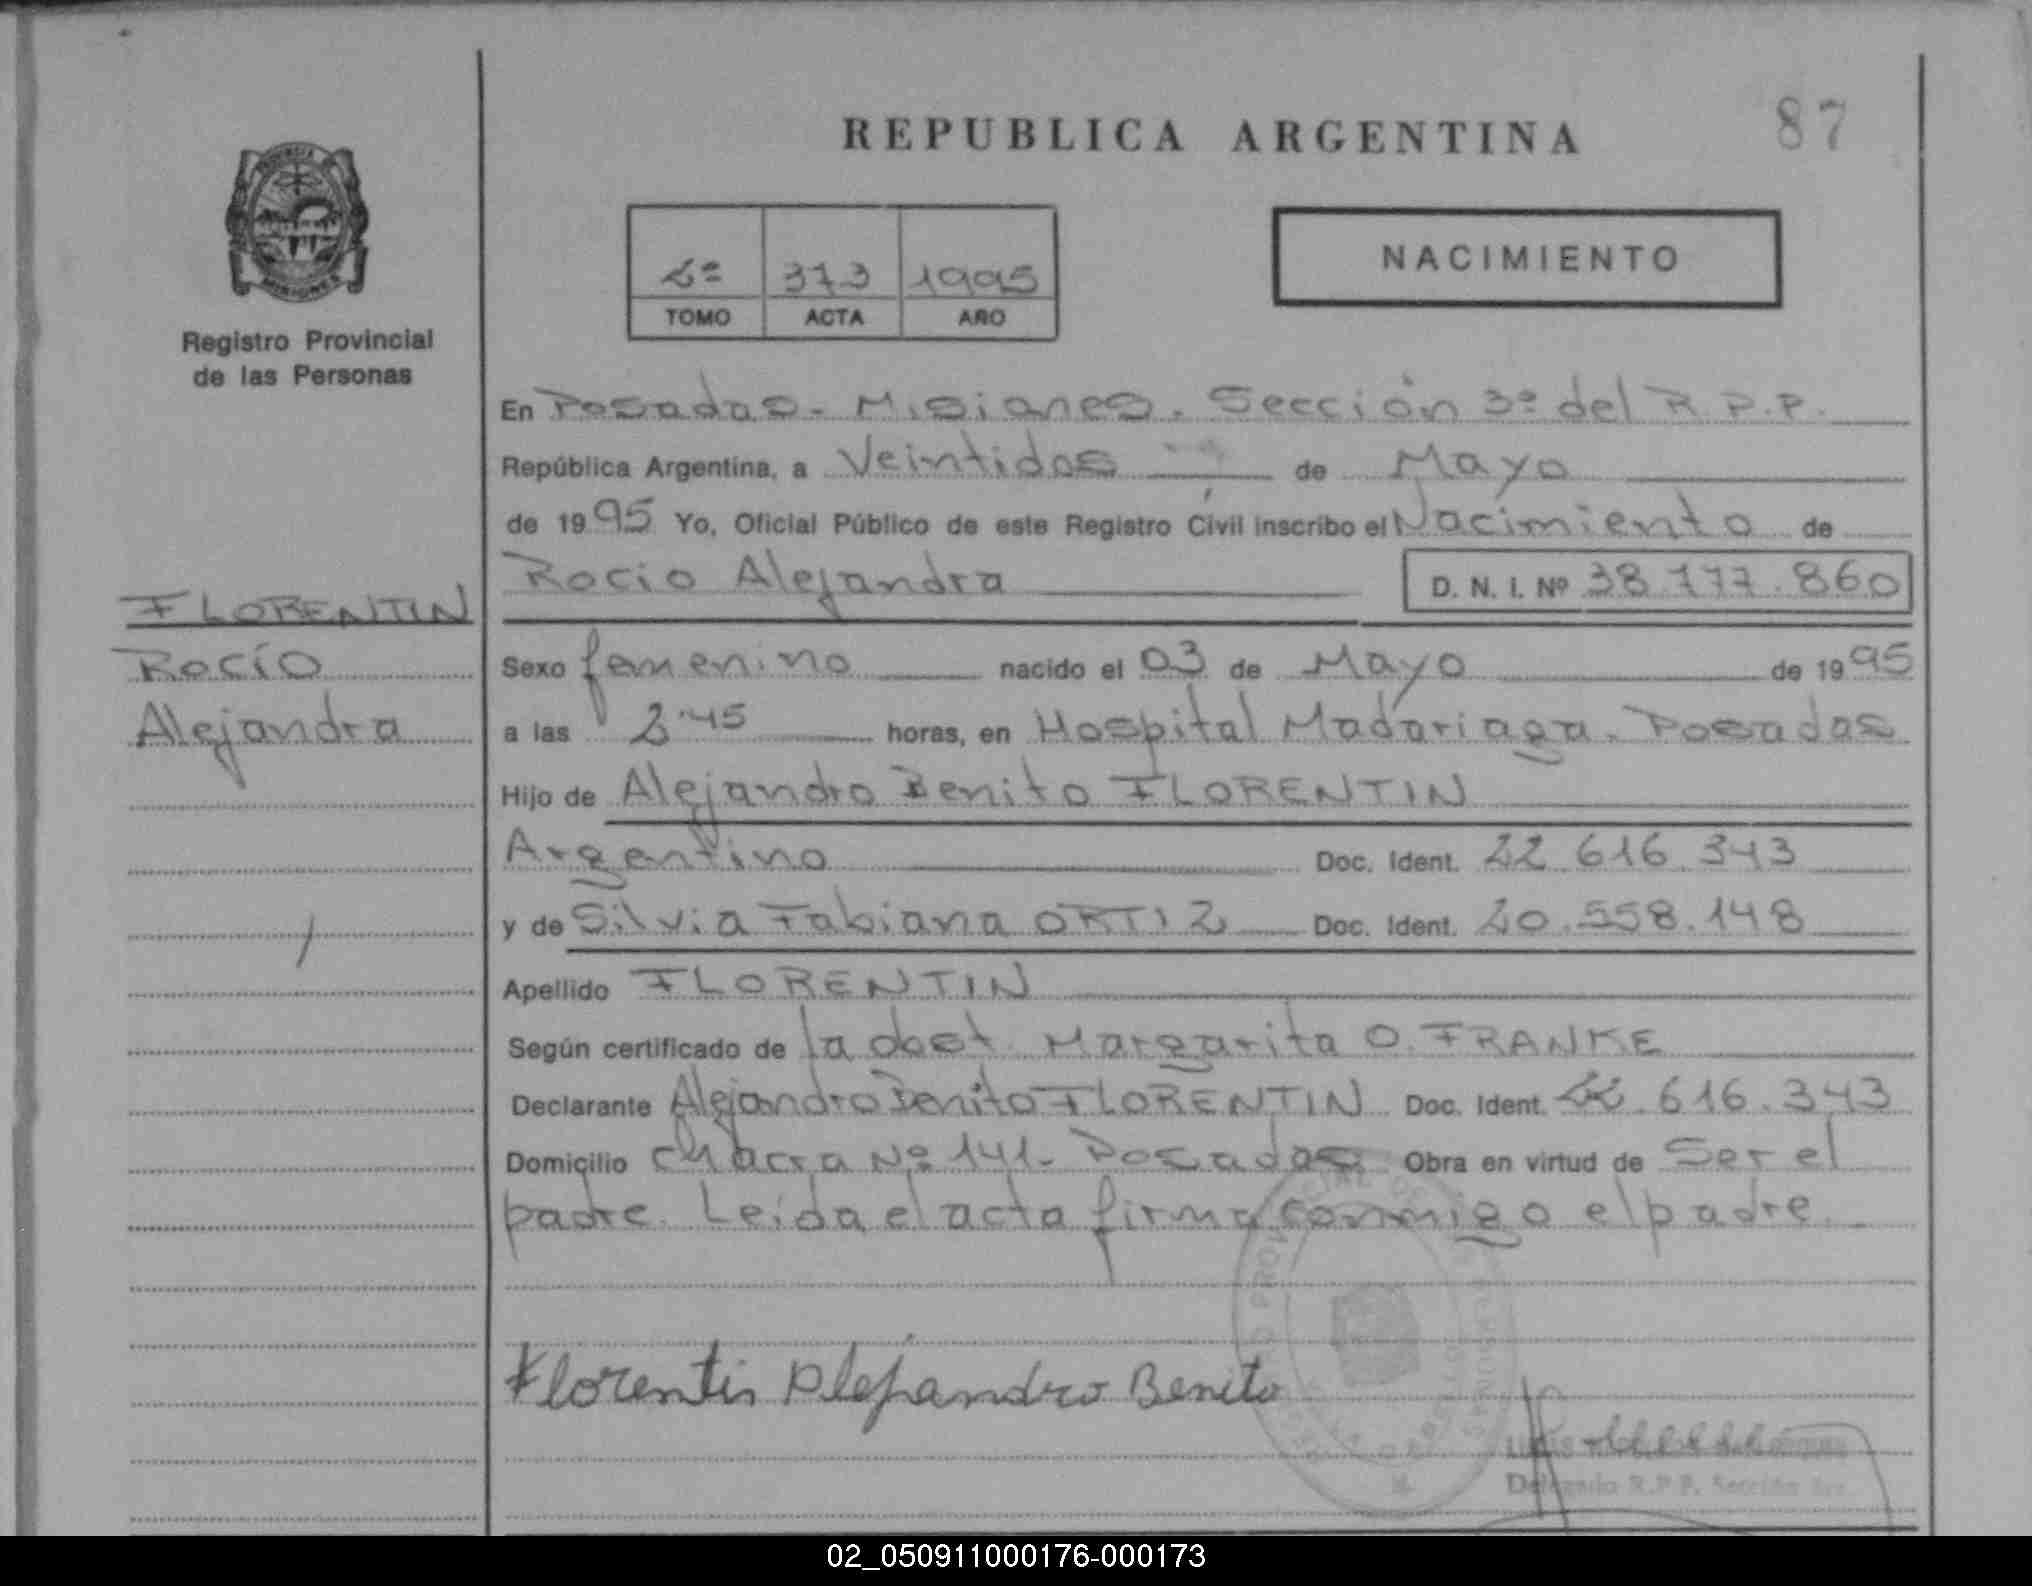 REPUBLICA ARGENTINA
87
PROVINCIA DE
MISIONES
Registro Provincial
de las Personas
2º 373 1995
TOMO ACTA AÑO
NACIMIENTO
En Posadas - Misiones. Sección 3º del R.P.P.
República Argentina, a Veintidos de Mayo
de 1995 Yo, Oficial Público de este Registro Civil inscribo el Nacimiento de
Rocio Alejandra D. N. I. Nº 38.777.860
FLORENTIN
Rocío
Alejandra
Sexo femenino nacido el 03 de Mayo de 1995
a las 2.45 horas, en Hospital Madariaga. Posadas
Hijo de Alejandro Benito FLORENTIN
Argentino Doc. Ident. 22.616.343
y de Silvia Fabiana ORTIZ Doc. Ident. 20.558.148
Apellido FLORENTIN
Según certificado de la obst. Margarita O. FRANKE
Declarante Alejandro Benito FLORENTIN Doc. Ident. 22.616.343
Domicilio Chacra Nº 141- Posadas Obra en virtud de Ser el
padre. Leída el acta firma conmigo el padre.
Florentin Alejandro Benito
Delegado R.P.P. Sección 3ra.
02_050911000176-000173